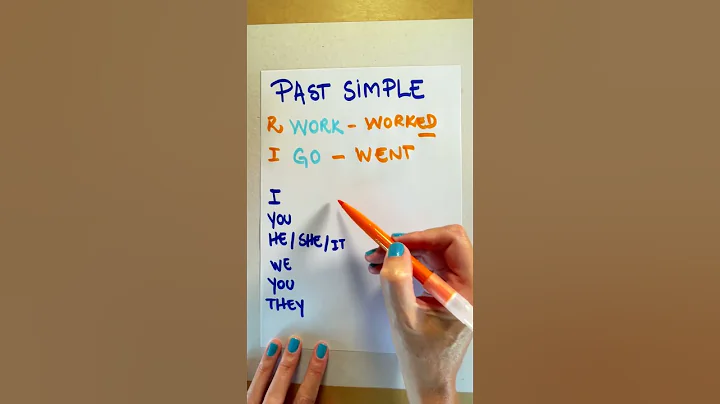 PAST SIMPLE
R WORK - WORKED
I GO - WENT
I
YOU
HE/SHE/IT
WE
YOU
THEY